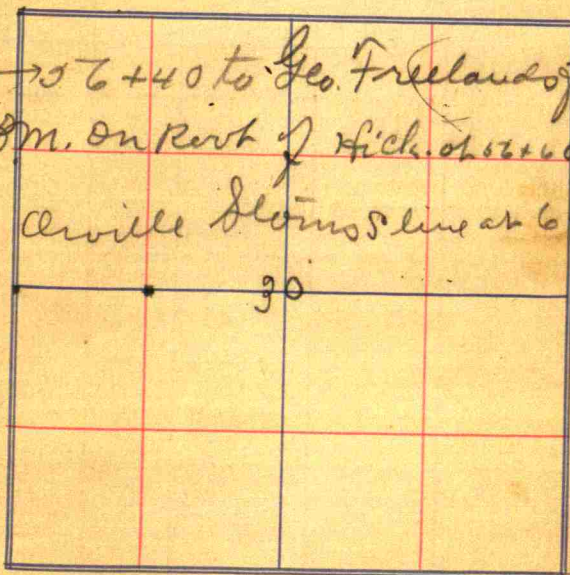 →56+40 to Geo. Freelands
B.M. on Root of Hick. at 56+60
Orville Storms S line at 6
30